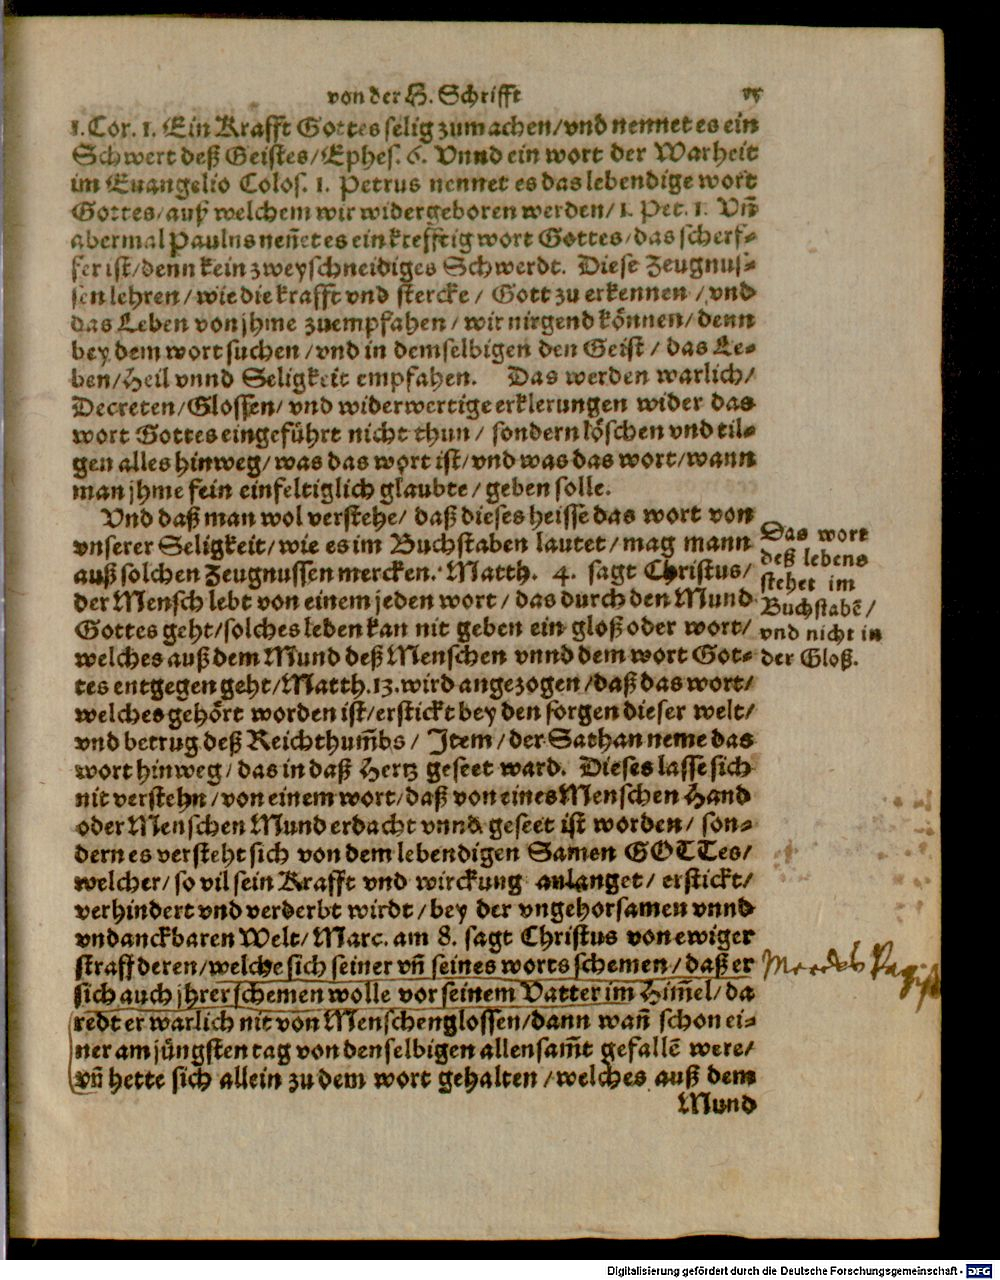 von der H. Schrifft
1. Cor. 1. Ein Krafft Gottes selig zumachen/vnd nennet es ein
Schwert deß Geistes/Ephes. 6. Vnnd ein wort der Warheit
im Euangelio Colos. 1. Petrus nennet es das lebendige wort
Gottes/auß welchem wir widergeboren werden/1. Pet. 1. Vn̄
abermal Paulus nen̄et es ein krefftig wort Gottes/das scherf-
fer ist/denn kein zweyschneidiges Schwerdt. Diese Zeugnus-
sen lehren/wie die krafft vnd stercke/ Gott zu erkennen/vnd
das Leben von jhme zuempfahen/wir nirgend können/denn
bey dem wort suchen/vnd in demselbigen den Geist/das Le-
ben/Heil vnnd Seligkeit empfahen. Das werden warlich/
Decreten/Glossen/vnd widerwertige erklerungen wider das
wort Gottes eingeführt nicht thun/ sondern löschen vnd til-
gen alles hinweg/was das wort ist/vnd was das wort/wann
man jhme fein einfeltiglich glaubte/geben solle.
Vnd daß man wol verstehe/ daß dieses heisse das wort von
vnserer Seligkeit/wie es im Buchstaben lautet/mag mann
auß solchen Zeugnussen mercken. Matth. 4. sagt Christus/
der Mensch lebt von einem jeden wort/das durch den Mund
Gottes geht/solches leben kan nit geben ein gloß oder wort/
welches auß dem Mund deß Menschen vnnd dem wort Got-
tes entgegen geht/Matth. 13. wird angezogen/daß das wort/
welches gehört worden ist/erstickt bey den sorgen dieser welt/
vnd betrug deß Reichthum̄bs/ Item/der Sathan neme das
wort hinweg/das in daß Hertz geseet ward. Dieses lasse sich
nit verstehn/von einem wort/daß von eines Menschen Hand
oder Menschen Mund erdacht vnnd geseet ist worden/ son-
dern es versteht sich von dem lebendigen Samen GOTTes/
welcher/so vil sein Krafft vnd wirckung anlanget/ erstickt/
verhindert vnd verderbt wirdt/bey der vngehorsamen vnnd
vndanckbaren Welt/Marc. am 8. sagt Christus von ewiger
straff deren/welche sich seiner vn̄ seines worts schemen/daß er
sich auch jhrer schemen wolle vor seinem Vatter im Him̄el/da
redt er warlich nit von Menschenglossen/dann wan̄ schon ei-
ner am jüngsten tag von denselbigen allensam̄t gefallē were/
vn̄ hette sich allein zu dem wort gehalten/welches auß dem
Mund
Das wort
deß lebens
stehet im
Buchstabē/
vnd nicht in
der Gloß.
Digitalisierung gefördert durch die Deutsche Forschungsgemeinschaft - DFG